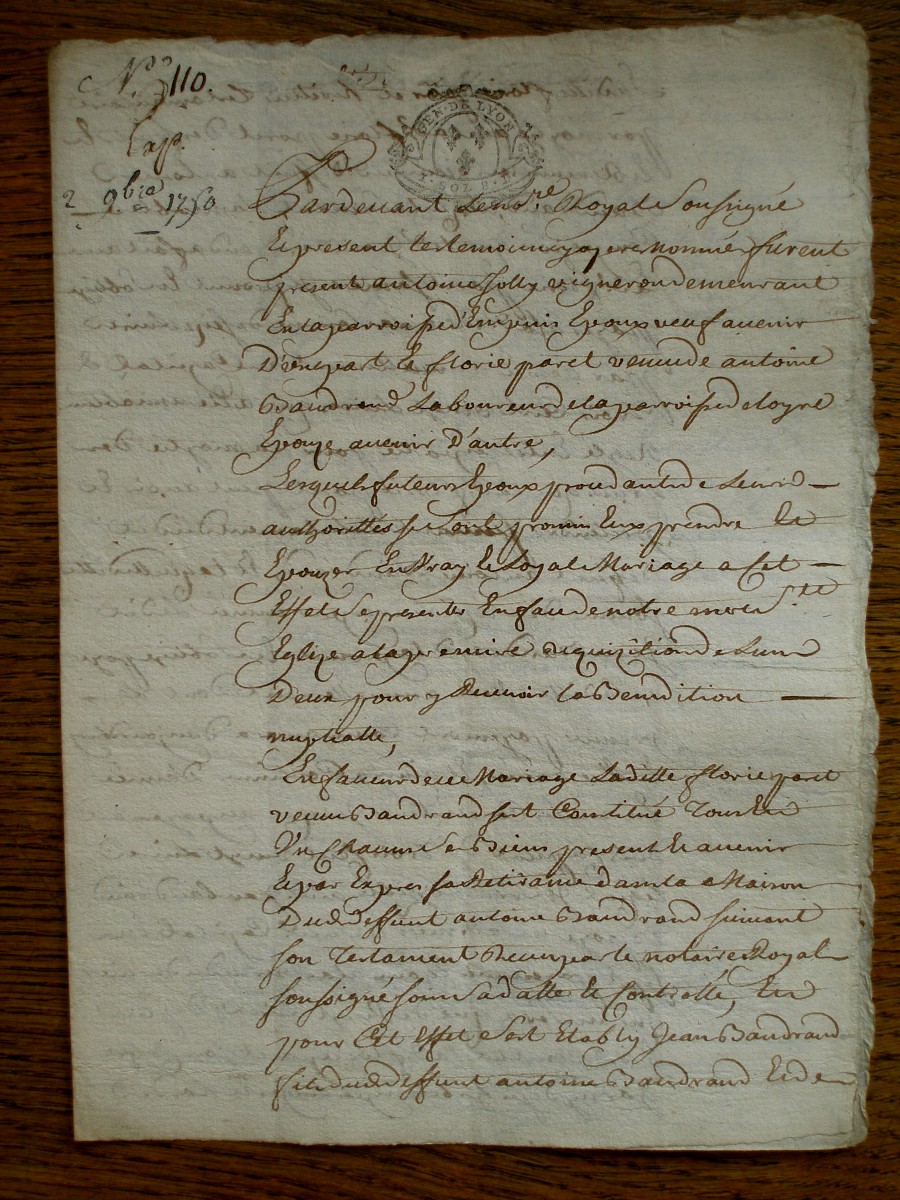 N.° 110.
Exp.
2 9bre 1750
GEN · DE LYON
SOL 8
Pardevant Le no.re Royal Soussigné
Et present les temoins nommés furent
present antoine Jolly vigneron demeurant
En la parroisse d'Empuis Epoux veuf a venir
D'une part Et florie paret veuve de antoine
Baudrand Laboureur de la parroisse de Loyre
Epouze a venir D'autre,
Lesquels futeurs Epoux procedant de Leurs
authorittés se sont promis Eux prendre Et
Epouzer En Vray Et Loyal Mariage a Cet
Effet Se presenter En face de notre mere s.te
Eglize a la premiere requizition de L'un
Deux pour y Recevoir la Benediction
nuptialle,
En faveur de ce Mariage Laditte florie paret
veuve Baudrand s'est Constitué Tous Et
Un Chacuns Ses Biens present Et avenir
Et par Expres sa Retirance dans la Maison
Dud deffunt antoine Baudrand suivant
son Testament Receu par le notaire Royal
sousigné sous Sa datte Et Controllé, Et
pour Cet Effet s'est Etably Jean Baudrand
fils dud deffunt antoine Baudrand Et de